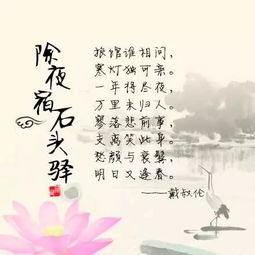 除夜宿石头驿
旅馆谁相问，
寒灯独可亲。
一年将尽夜，
万里未归人。
寥落悲前事，
支离笑此身。
愁颜与衰鬓，
明日又逢春。
——戴叔伦